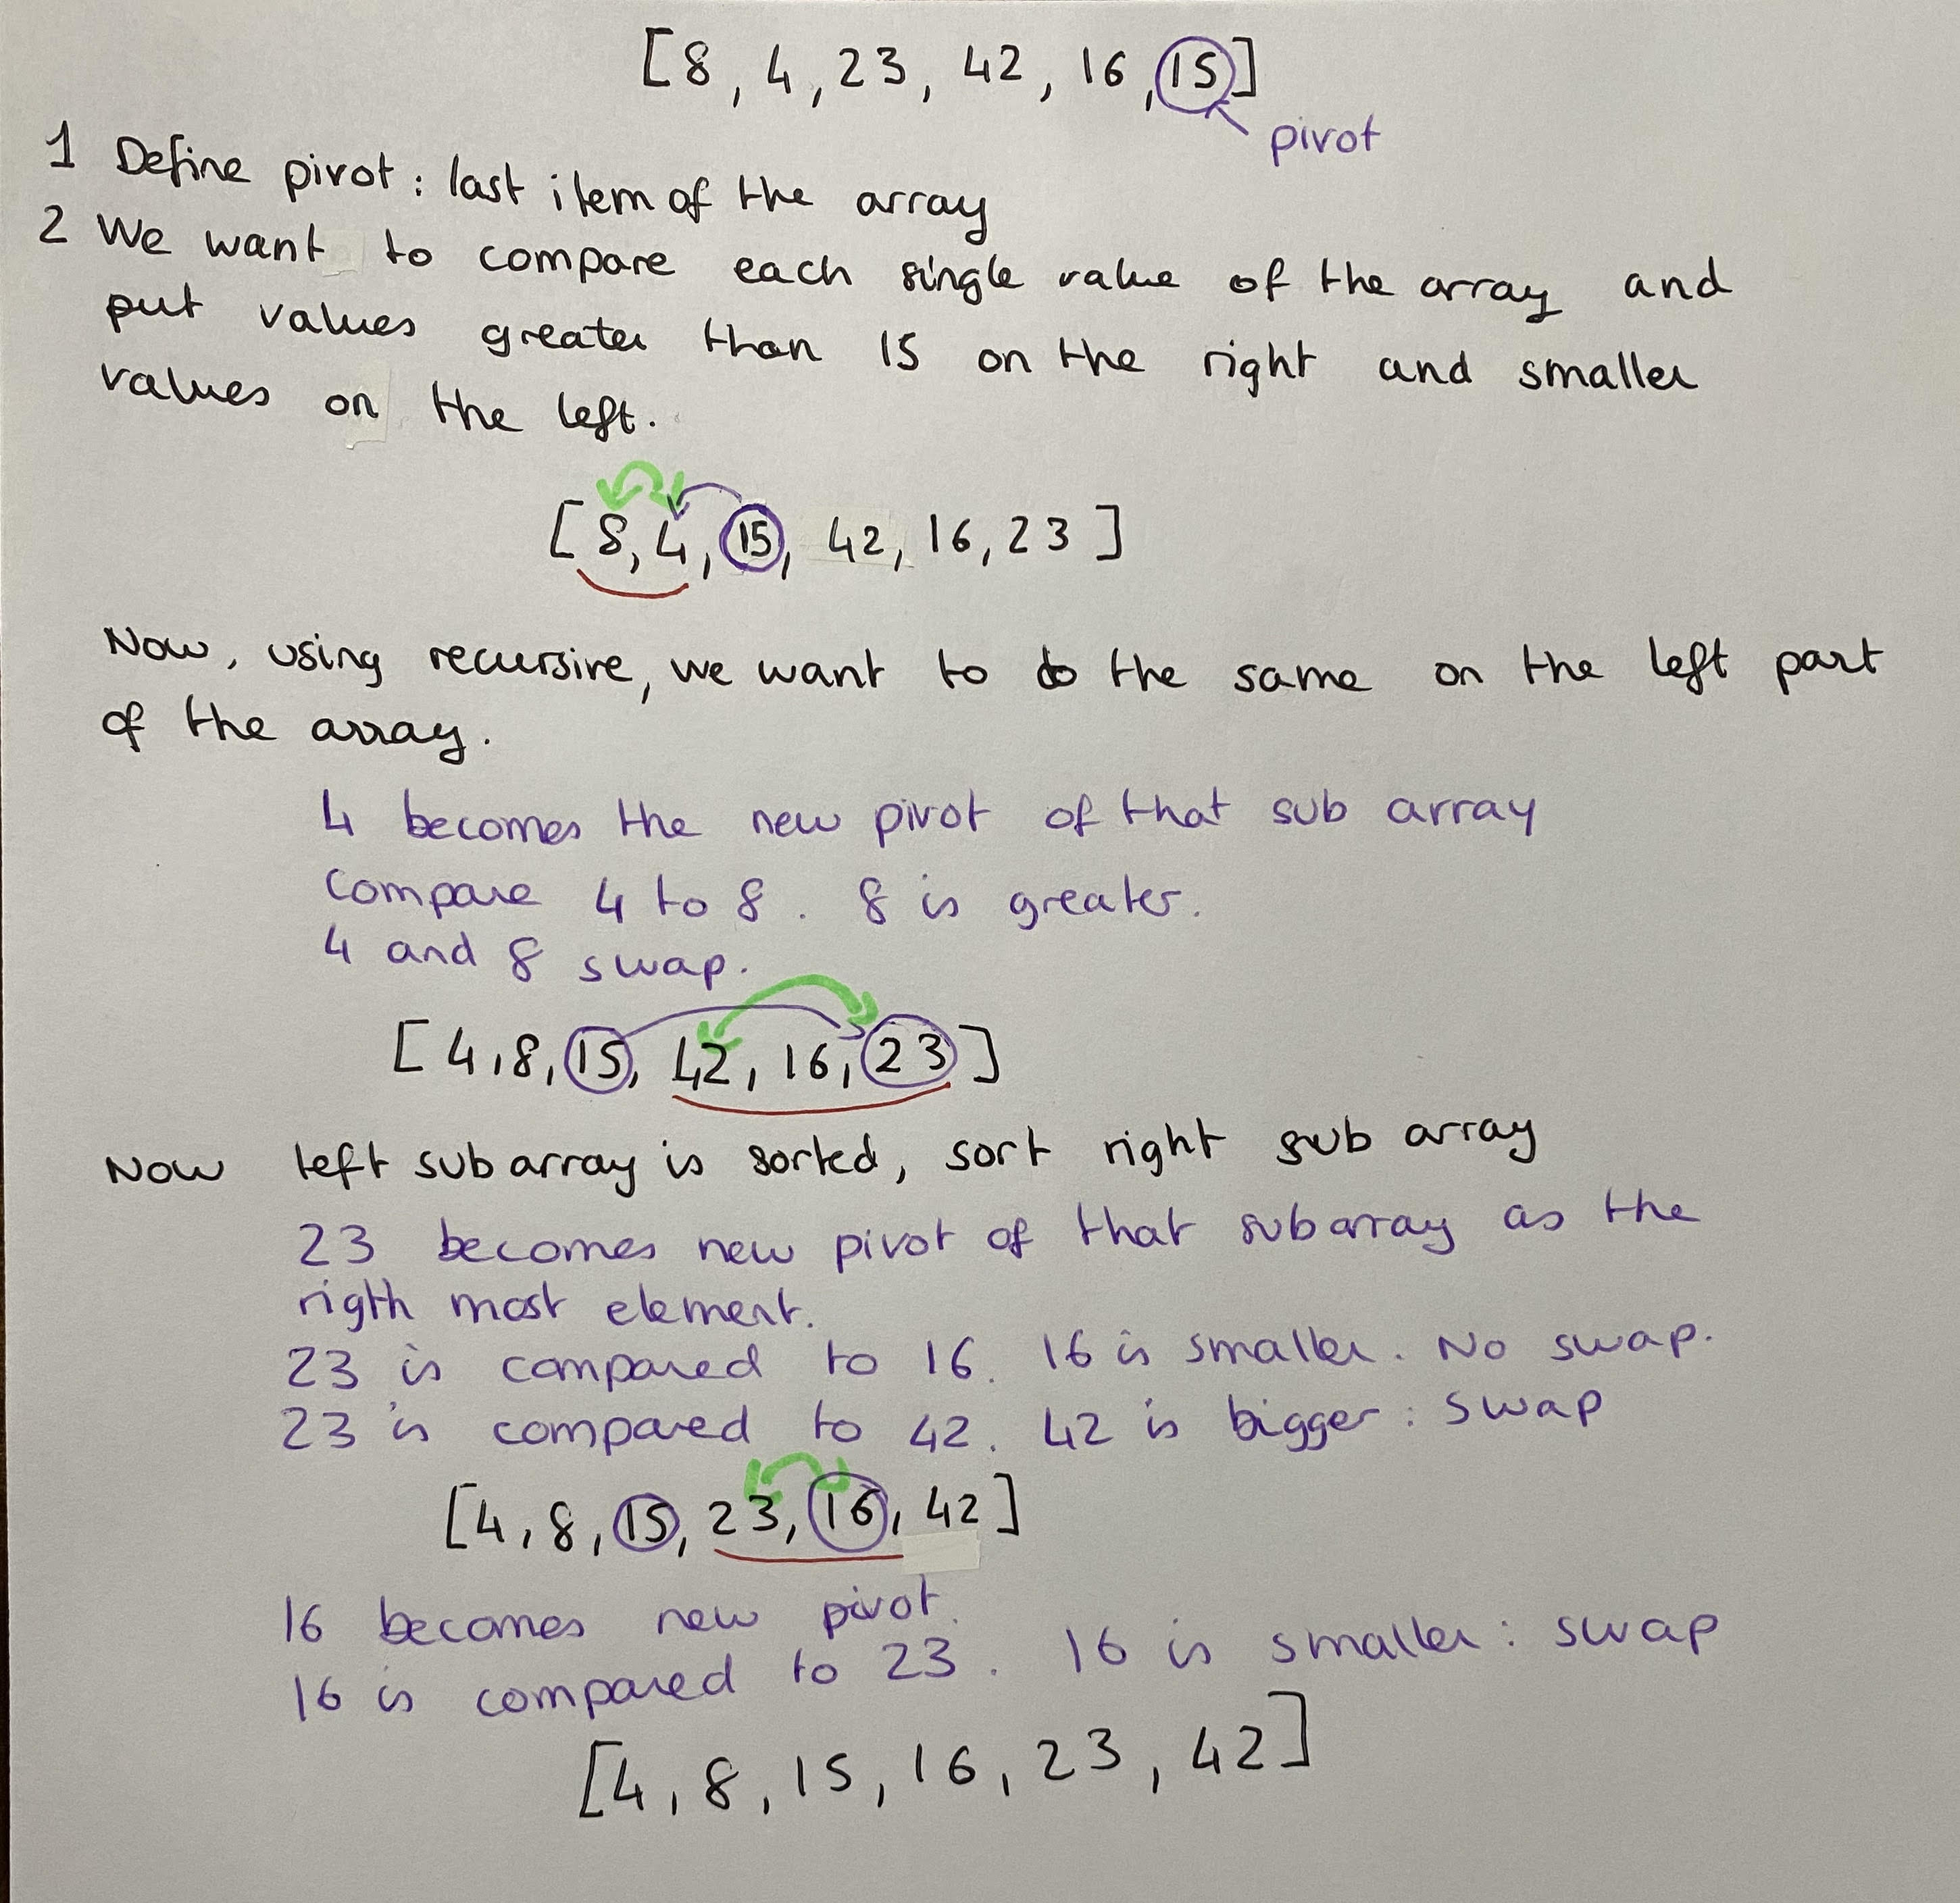 [8, 4, 23, 42, 16, 15]
pivot
1 Define pivot: last item of the array
2 We want to compare each single value of the array and
put values greater than 15 on the right and smaller
values on the left.
[8, 4, 15, 42, 16, 23]
Now, using recursive, we want to do the same on the left part
of the array.
4 becomes the new pivot of that sub array
compare 4 to 8. 8 is greater.
4 and 8 swap.
[4, 8, 15, 42, 16, 23]
Now left sub array is sorted, sort right sub array
23 becomes new pivot of that subarray as the
rigth most element.
23 is compared to 16. 16 is smaller. No swap.
23 is compared to 42. 42 is bigger: swap
[4, 8, 15, 23, 16, 42]
16 becomes new pivot.
16 is compared to 23. 16 is smaller: swap
[4, 8, 15, 16, 23, 42]